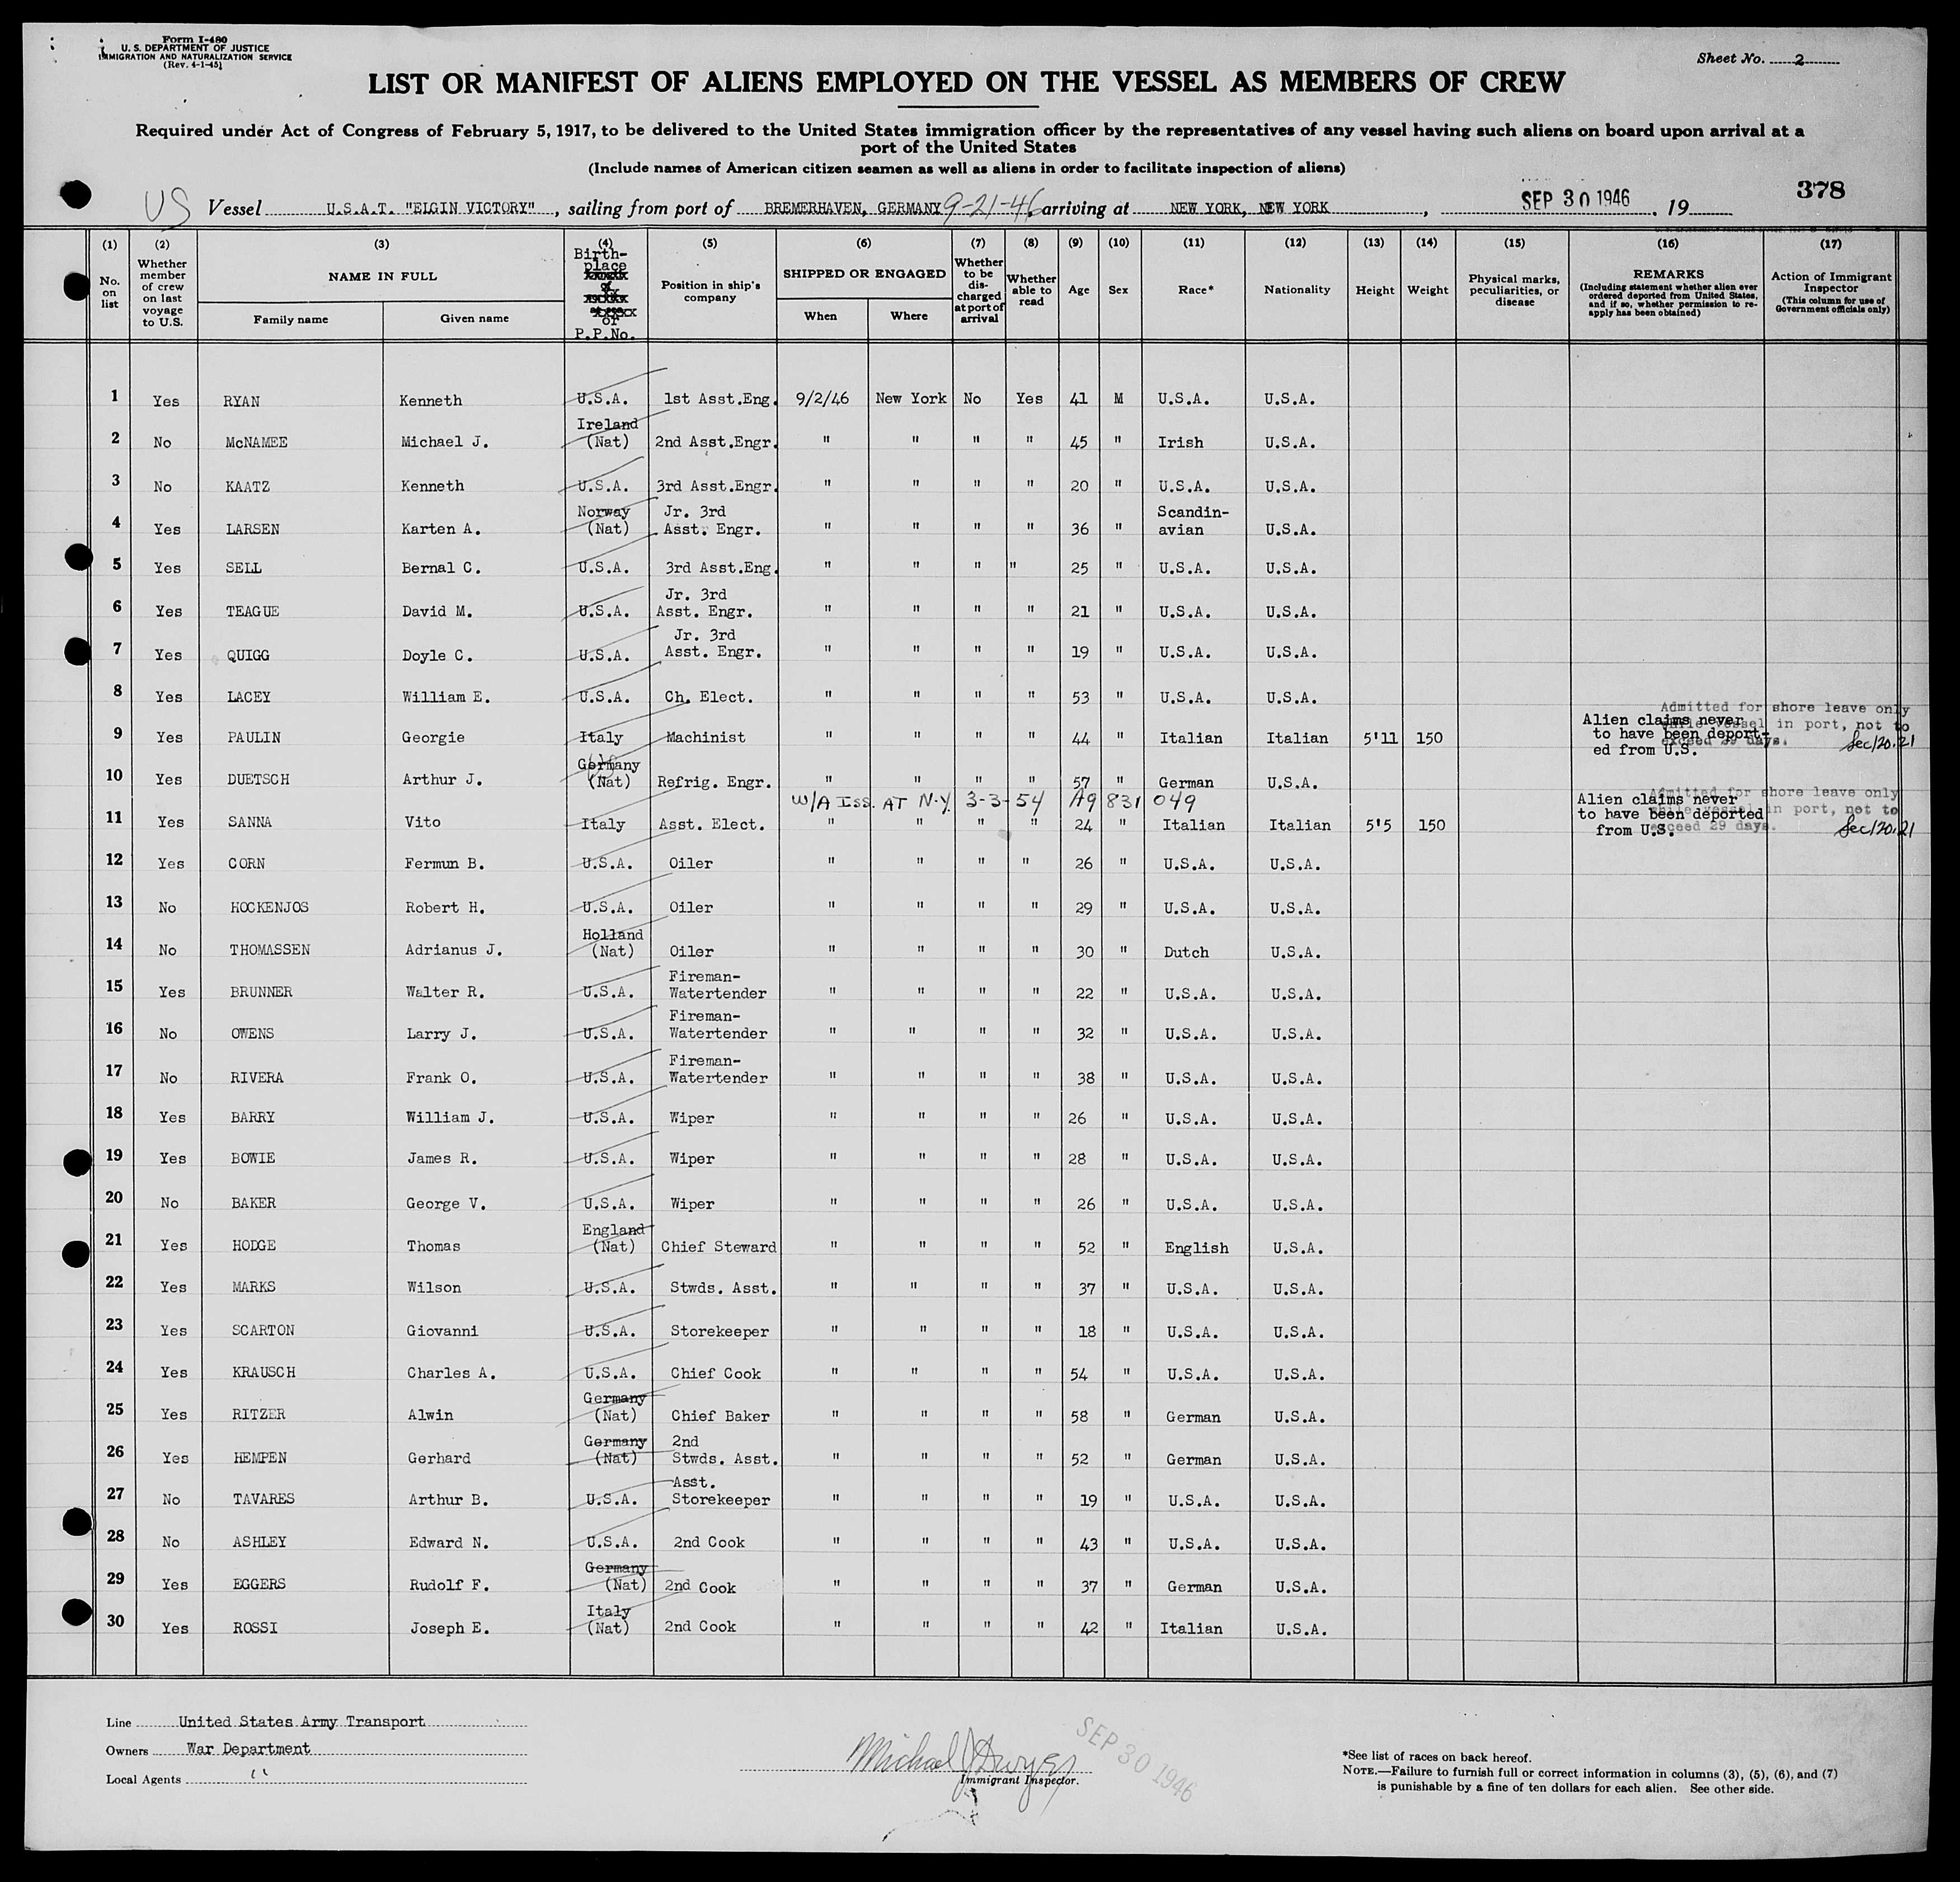 Form I-480
U. S. DEPARTMENT OF JUSTICE
IMMIGRATION AND NATURALIZATION SERVICE
(Rev. 4-1-45)
Sheet No. 2
LIST OR MANIFEST OF ALIENS EMPLOYED ON THE VESSEL AS MEMBERS OF CREW
Required under Act of Congress of February 5, 1917, to be delivered to the United States immigration officer by the representatives of any vessel having such aliens on board upon arrival at a
port of the United States
(Include names of American citizen seamen as well as aliens in order to facilitate inspection of aliens)
378
US Vessel U.S.A.T. "ELGIN VICTORY", sailing from port of BREMERHAVEN, GERMANY 9-21-46, arriving at NEW YORK, NEW YORK, SEP 30 1946, 19
(1) (2) (3) (4) (5) (6) (7) (8) (9) (10) (11) (12) (13) (14) (15) (16) (17)
No. on list
Whether member of crew on last voyage to U.S.
NAME IN FULL
Family name Given name
Birth-place or P.P.No.
Position in ship's company
SHIPPED OR ENGAGED
When Where
Whether to be discharged at port of arrival
Whether able to read
Age Sex Race* Nationality Height Weight
Physical marks, peculiarities, or disease
REMARKS
(Including statement whether alien ever ordered deported from United States, and if so, whether permission to re-apply has been obtained)
Action of Immigrant Inspector
(This column for use of Government officials only)
1 Yes RYAN Kenneth U.S.A. 1st Asst.Eng. 9/2/46 New York No Yes 41 M U.S.A. U.S.A.
2 No McNAMEE Michael J. Ireland (Nat) 2nd Asst.Engr. " " " " 45 " Irish U.S.A.
3 No KAATZ Kenneth U.S.A. 3rd Asst.Engr. " " " " 20 " U.S.A. U.S.A.
4 Yes LARSEN Karten A. Norway (Nat) Jr. 3rd Asst. Engr. " " " " 36 " Scandin-avian U.S.A.
5 Yes SELL Bernal C. U.S.A. 3rd Asst.Eng. " " " " 25 " U.S.A. U.S.A.
6 Yes TEAGUE David M. U.S.A. Jr. 3rd Asst. Engr. " " " " 21 " U.S.A. U.S.A.
7 Yes QUIGG Doyle C. U.S.A. Jr. 3rd Asst. Engr. " " " " 19 " U.S.A. U.S.A.
8 Yes LACEY William E. U.S.A. Ch. Elect. " " " " 53 " U.S.A. U.S.A.
9 Yes PAULIN Georgie Italy Machinist " " " " 44 " Italian Italian 5'11 150 Alien claims never to have been deport-ed from U.S. Admitted for shore leave only while vessel in port, not to exceed 29 days. Sec 120.21
10 Yes DUETSCH Arthur J. Germany (Nat) Refrig. Engr. " " " " 57 " German U.S.A.
W/A Iss. AT N.Y. 3-3-54 A9 831 049
11 Yes SANNA Vito Italy Asst. Elect. " " " " 24 " Italian Italian 5'5 150 Alien claims never to have been deported from U.S. Admitted for shore leave only while vessel in port, not to exceed 29 days. Sec 120.21
12 Yes CORN Fermun B. U.S.A. Oiler " " " " 26 " U.S.A. U.S.A.
13 No HOCKENJOS Robert H. U.S.A. Oiler " " " " 29 " U.S.A. U.S.A.
14 No THOMASSEN Adrianus J. Holland (Nat) Oiler " " " " 30 " Dutch U.S.A.
15 Yes BRUNNER Walter R. U.S.A. Fireman-Watertender " " " " 22 " U.S.A. U.S.A.
16 No OWENS Larry J. U.S.A. Fireman-Watertender " " " " 32 " U.S.A. U.S.A.
17 No RIVERA Frank O. U.S.A. Fireman-Watertender " " " " 38 " U.S.A. U.S.A.
18 Yes BARRY William J. U.S.A. Wiper " " " " 26 " U.S.A. U.S.A.
19 Yes BOWIE James R. U.S.A. Wiper " " " " 28 " U.S.A. U.S.A.
20 No BAKER George V. U.S.A. Wiper " " " " 26 " U.S.A. U.S.A.
21 Yes HODGE Thomas England (Nat) Chief Steward " " " " 52 " English U.S.A.
22 Yes MARKS Wilson U.S.A. Stwds. Asst. " " " " 37 " U.S.A. U.S.A.
23 Yes SCARTON Giovanni U.S.A. Storekeeper " " " " 18 " U.S.A. U.S.A.
24 Yes KRAUSCH Charles A. U.S.A. Chief Cook " " " " 54 " U.S.A. U.S.A.
25 Yes RITZER Alwin Germany (Nat) Chief Baker " " " " 58 " German U.S.A.
26 Yes HEMPEN Gerhard Germany (Nat) 2nd Stwds. Asst. " " " " 52 " German U.S.A.
27 No TAVARES Arthur B. U.S.A. Asst. Storekeeper " " " " 19 " U.S.A. U.S.A.
28 No ASHLEY Edward N. U.S.A. 2nd Cook " " " " 43 " U.S.A. U.S.A.
29 Yes EGGERS Rudolf F. Germany (Nat) 2nd Cook " " " " 37 " German U.S.A.
30 Yes ROSSI Joseph E. Italy (Nat) 2nd Cook " " " " 42 " Italian U.S.A.
Line United States Army Transport
Owners War Department
Local Agents "
Michael J Dwyer
Immigrant Inspector.
SEP 30 1946
*See list of races on back hereof.
NOTE.—Failure to furnish full or correct information in columns (3), (5), (6), and (7)
is punishable by a fine of ten dollars for each alien. See other side.